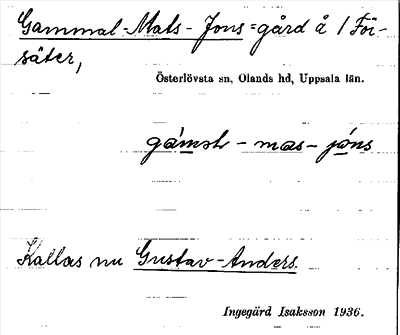 Gammal-Mats-Jons=gård å / För-
säter,
Österlövsta sn, Olands hd, Uppsala län.
gáməl-mas-jóns
Kallas nu Gustav-Anders.
Ingegärd Isaksson 1936.